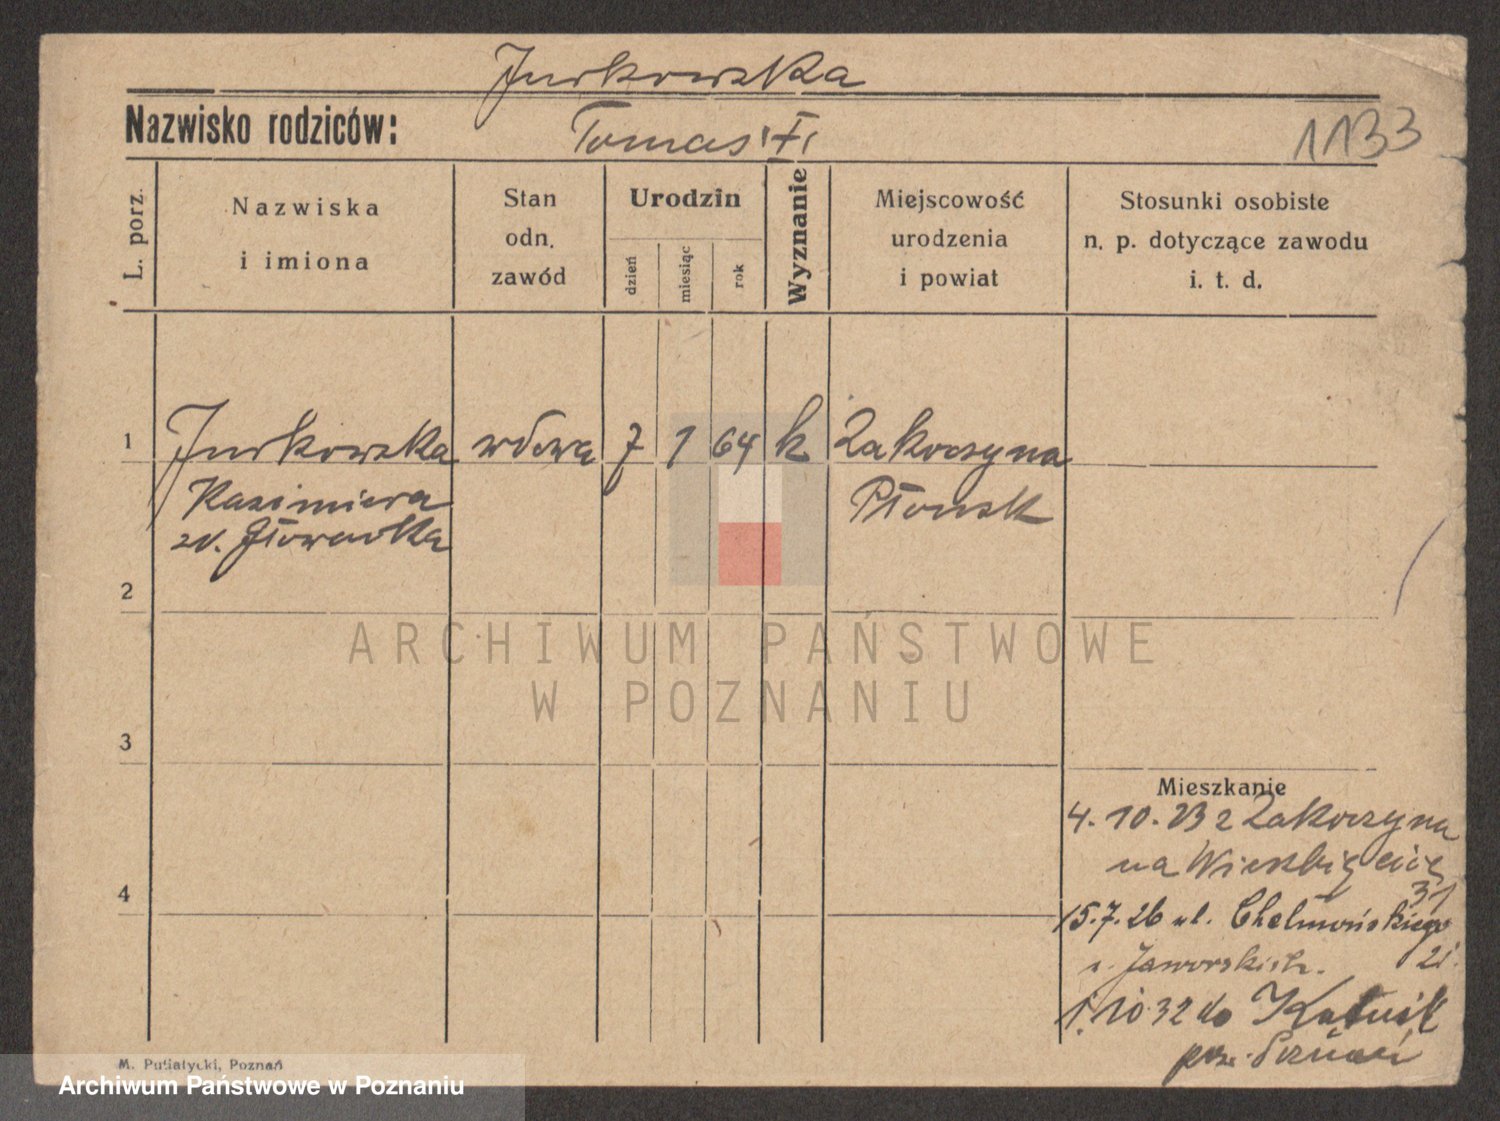 Jurkowska
Nazwisko rodziców:
Tomasz
1133
L. porz.
Nazwiska
i imiona
Stan
odn.
zawód
Urodzin
dzień
miesiąc
rok
Wyznanie
Miejscowość
urodzenia
i powiat
Stosunki osobiste
n. p. dotyczące zawodu
i. t. d.
1
Jurkowska wdowa 7 1 64 k Zakroczyna
Kazimiera Płońsk
zd.
2
ARCHIWUM PAŃSTWOWE
W POZNANIU
3
Mieszkanie
4. 10. 23 z Zakroczyna
na Wierzbięcice
31
4
15.7.26 ul. Chełmońskiego
21.
u. Jaworskich.
1.10.32 do
pow. Poznań
M. Putiatycki, Poznań
Archiwum Państwowe w Poznaniu